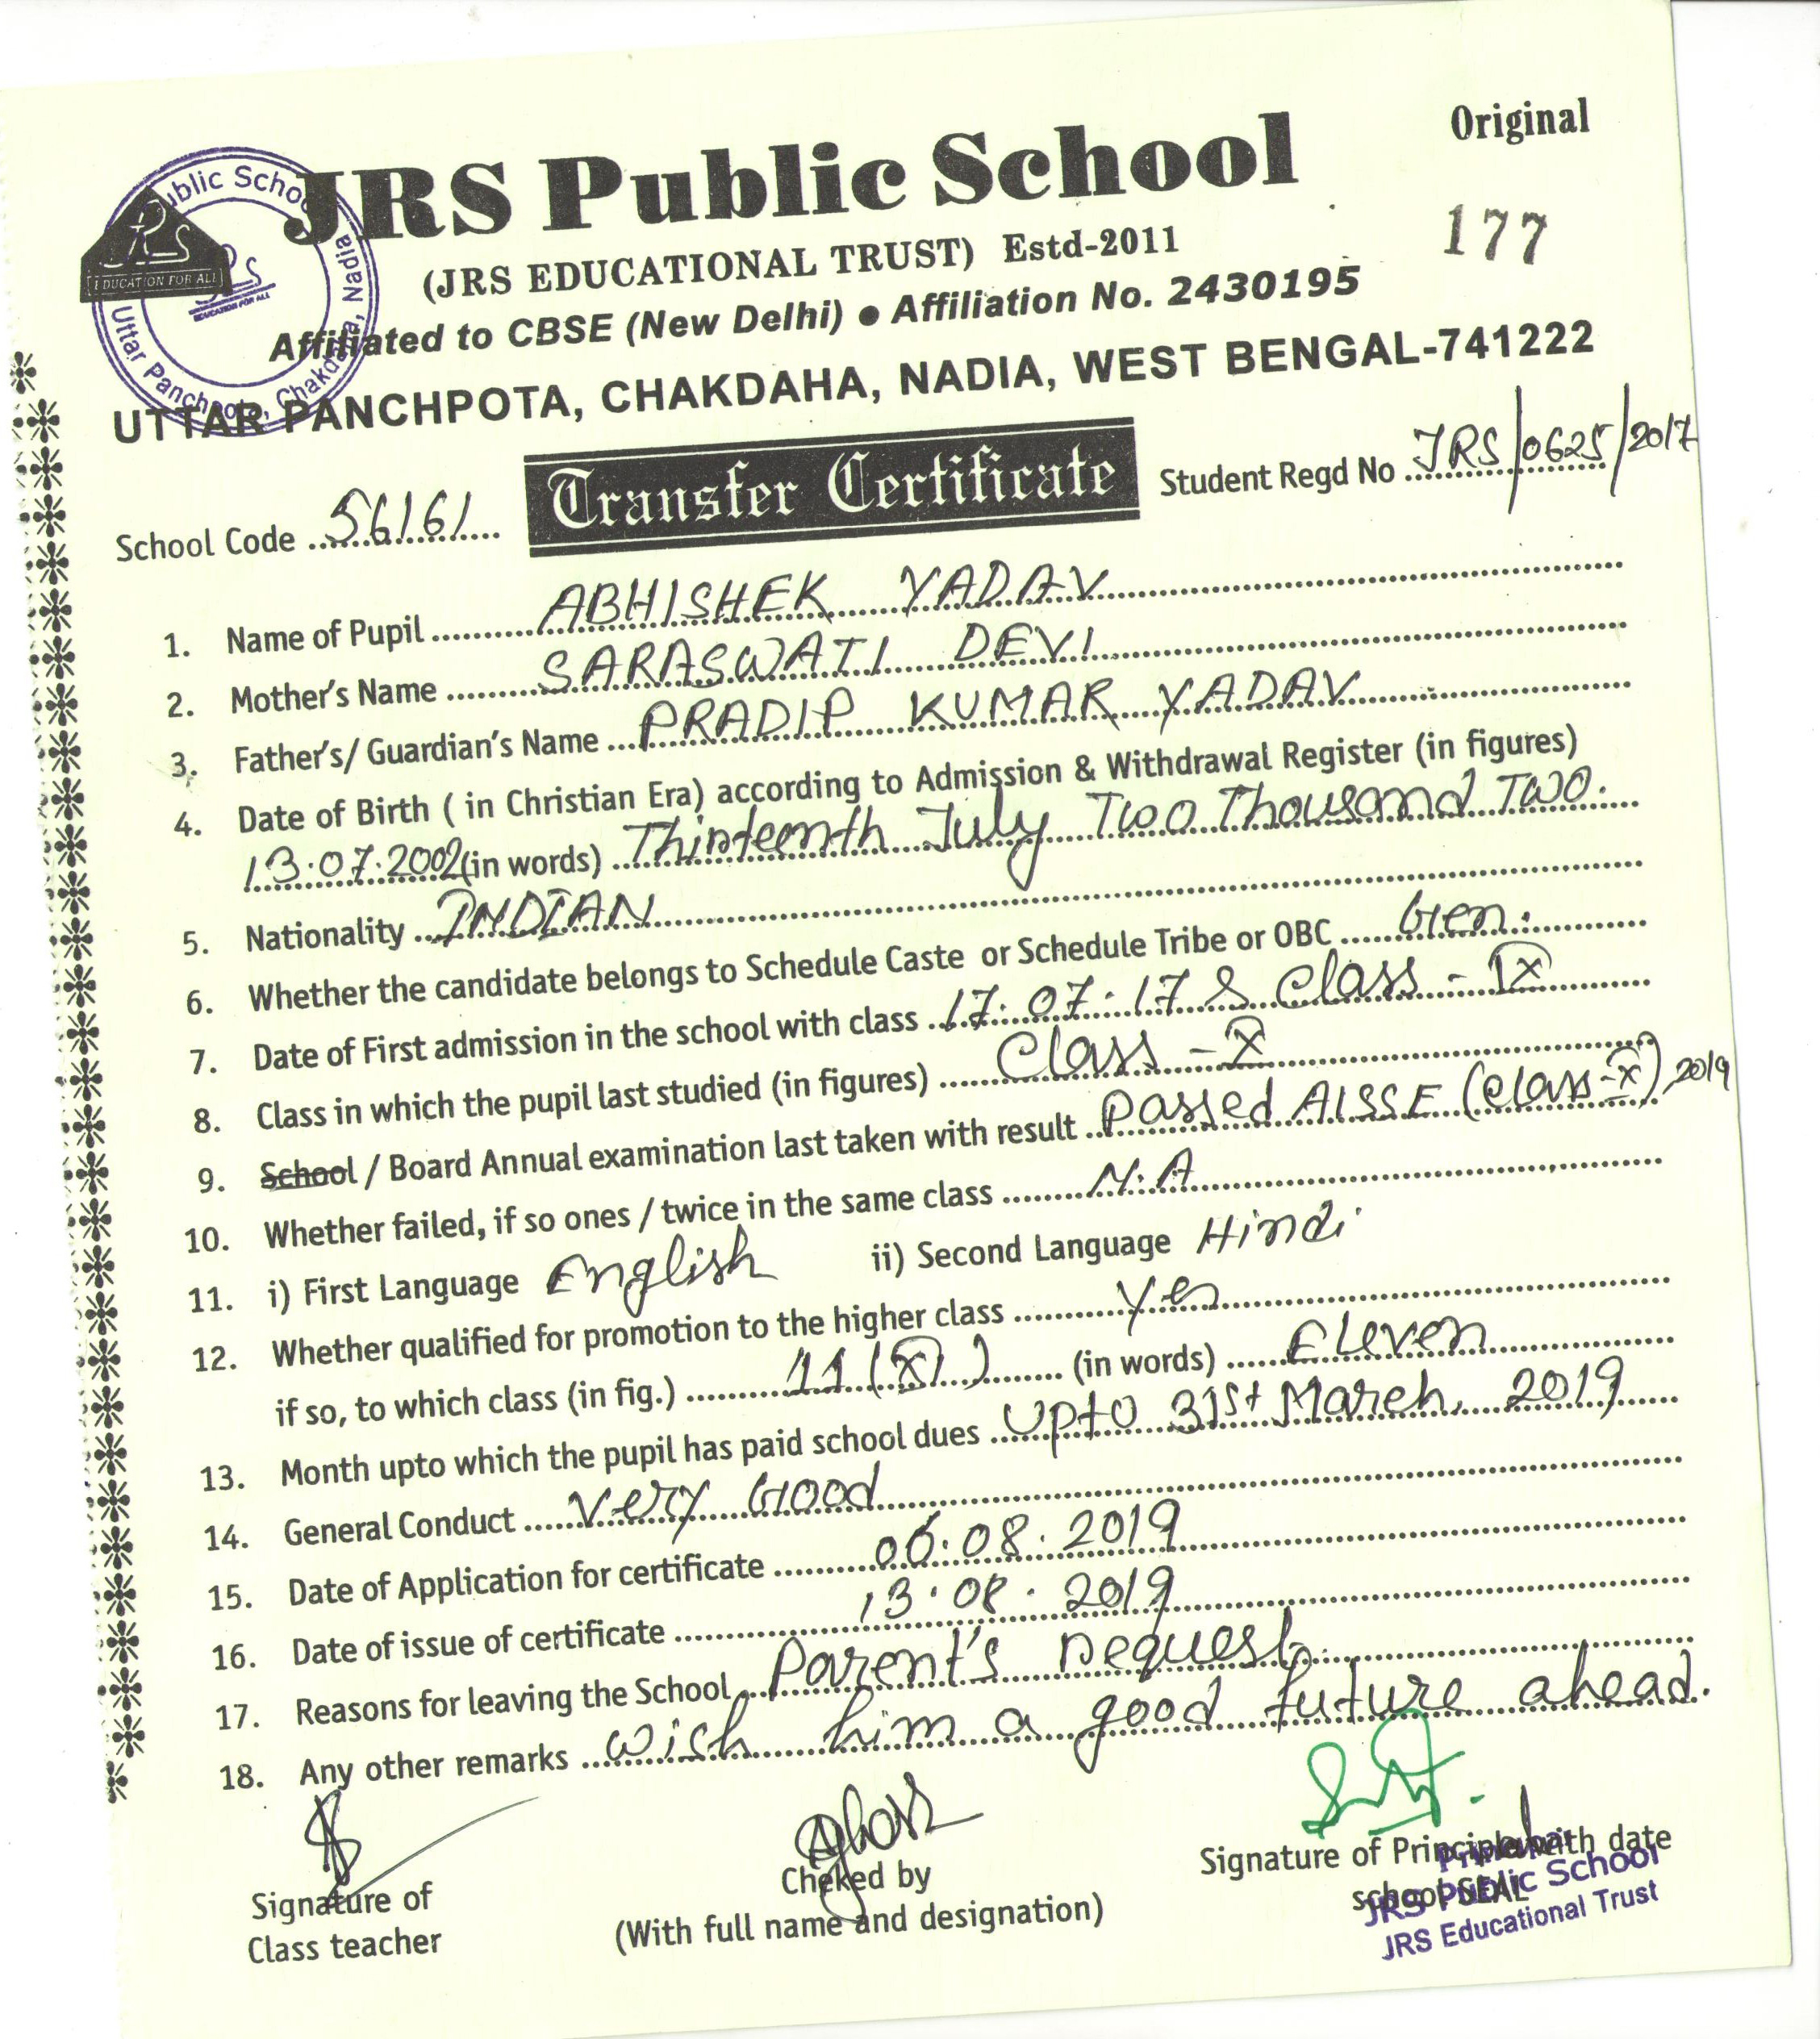 Original
JRS Public School
177
(JRS EDUCATIONAL TRUST) Estd-2011
Affiliated to CBSE (New Delhi) ● Affiliation No. 2430195
UTTAR PANCHPOTA, CHAKDAHA, NADIA, WEST BENGAL-741222
JRS
EDUCATION FOR ALL
Public School
Uttar Panchpota, Chakdaha, Nadia
EDUCATION FOR ALL
School Code 56161 Transfer Certificate Student Regd No JRS/0625/2017
1. Name of Pupil ABHISHEK YADAV
2. Mother's Name SARASWATI DEVI
3. Father's/ Guardian's Name PRADIP KUMAR YADAV
4. Date of Birth ( in Christian Era) according to Admission & Withdrawal Register (in figures)
13.07.2002 (in words) Thirteenth July Two Thousand Two.
5. Nationality INDIAN
6. Whether the candidate belongs to Schedule Caste or Schedule Tribe or OBC Gen.
7. Date of First admission in the school with class 17.07.17 & Class - IX
8. Class in which the pupil last studied (in figures) Class - X
9. School / Board Annual examination last taken with result Passed AISSE (Class-X), 2019
10. Whether failed, if so ones / twice in the same class N.A
11. i) First Language English ii) Second Language Hindi
12. Whether qualified for promotion to the higher class Yes
if so, to which class (in fig.) 11 (XI) (in words) Eleven
13. Month upto which the pupil has paid school dues Upto 31st March, 2019
14. General Conduct Very Good
15. Date of Application for certificate 06.08.2019
16. Date of issue of certificate 13.08.2019
17. Reasons for leaving the School Parent's request.
18. Any other remarks wish him a good future ahead.
Signature of
Class teacher
Cheked by
(With full name and designation)
Signature of Principle with date
school SEAL
Principal
JRS Public School
JRS Educational Trust